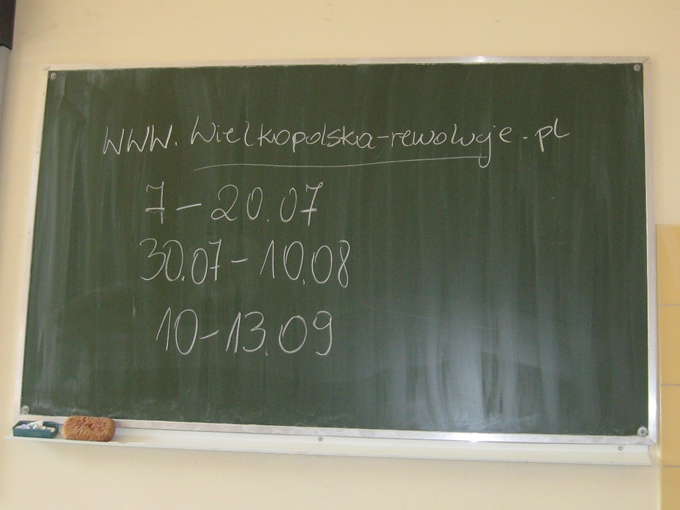 www.Wielkopolska-rewolucje.pl
7-20.07
30.07-10.08
10-13.09